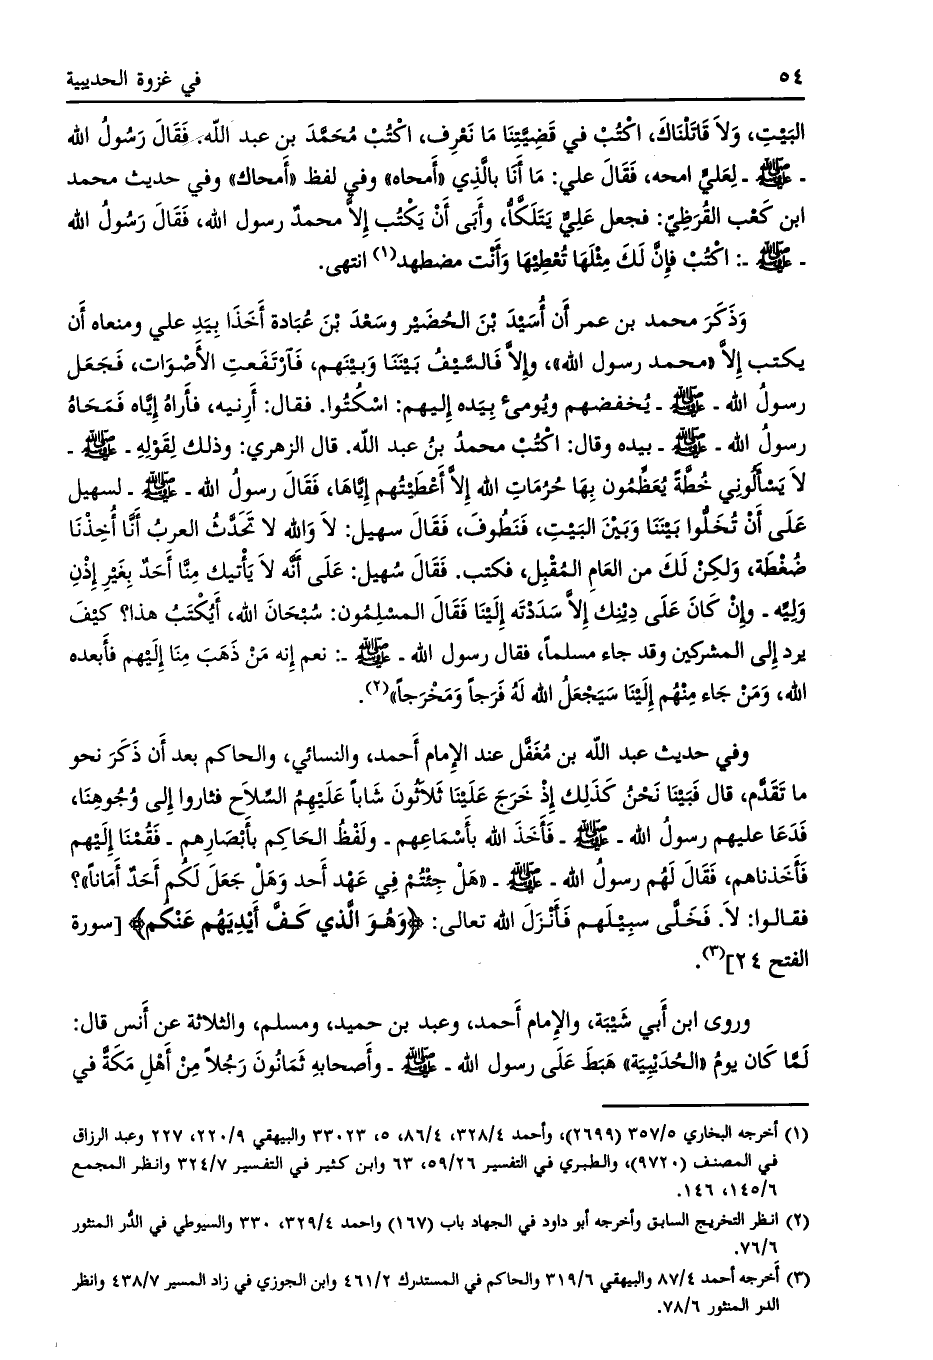 ٥٤ في غزوة الحديبية
البَيْتِ، وَلاَ قَاتَلْنَاكَ، اكْتُبْ في قَضِيَّتِنَا مَا نَعْرِف، اكْتُبْ مُحَمَّدَ بن عبد اللّه. فَقَالَ رَسُولُ الله
- ﷺ - لِعَليٍّ امحه، فَقَالَ علي: مَا أَنَا بالَّذِي «أمحاه» وفي لفظ «أمحاك» وفي حديث محمد
ابن كَعْب القُرَظِيّ: فجعل عَلِيٌّ يَتَلَكَّأُ، وأَبَى أَنْ يَكْتُب إلاَّ محمدٌ رسول الله، فَقَالَ رَسُولُ الله
- ﷺ -: اكْتُبْ فإِنَّ لَكَ مِثْلَهَا تُعْطِيْهَا وَأَنْت مضطهد(١) انتهى.
وَذَكَرَ محمد بن عمر أن أُسَيْدَ بْنَ الحُضَيْر وسَعْدَ بْنَ عُبَادة أَخَذَا بِيَدِ علي ومنعاه أن
يكتب إِلاَّ «محمد رسول الله»، وإِلاَّ فَالسَّيْفُ بَيْنَنَا وَبَيْنَهم، فَارْتَفَعتِ الأَصْوَات، فَجَعَل
رسولُ الله - ﷺ - يُخفضهم ويُومئ بِيَده إليهم: اسكُتُوا. فقال: أَرِنيه، فأَراهُ إِيَّاه فَمَحَاهُ
رسولُ الله - ﷺ - بيده وقال: اكْتُبْ محمدُ بنُ عبد اللّه. قال الزهري: وذلك لِقَوْلِهِ - ﷺ -
لاَ يَسْأَلُونِي خُطَّةً يُعَظِّمُون بِهَا حُرُمَاتِ الله إِلاَّ أَعْطَيْتُهم إِيَّاهَا، فَقَالَ رسولُ الله - ﷺ - لسهيل
عَلَى أَنْ تُخَلُّوا بَيْنَنَا وَبَيْنَ البَيْتِ، فَنَطُوفَ، فَقَالَ سهيل: لاَ وَالله لا تَحَدَّثُ العربُ أَنَّا أُخِذْنَا
ضُغْطَة، وَلكِنْ لَكَ من العَامِ المُقْبِل، فكتب. فَقَالَ سُهيل: عَلَى أَنَّه لاَ يَأْتيك مِنَّا أَحَدٌ بِغَيْرِ إِذْنِ
وَليِّه - وإِنْ كَانَ عَلَى دِيْنِك إِلاَّ سَدَدْتَه إِلَيْنَا فَقَالَ المسْلِمُون: سُبْحَانَ الله، أَيُكْتَبُ هذا؟ كيْفَ
يرد إِلى المشركين وقد جاء مسلماً، فقال رسول الله - ﷺ -: نعم إنه مَنْ ذَهَبَ مِنَا إِلَيْهم فأَبعده
الله، وَمَنْ جَاء مِنْهُم إِلَيْنَا سَيَجْعَلُ الله لَهُ فَرَجاً وَمَخْرَجاً»(٢).
وفي حديث عبد اللّه بن مُغَفَّل عند الإِمام أَحمد، والنسائي، والحاكم بعد أَن ذَكَرَ نحو
ما تَقَدَّم، قال فَبَيْنَا نَحْنُ كَذَلِك إِذْ خَرَجَ عَلَيْنَا ثَلاَثُونَ شَاباً عَلَيْهِمُ السِّلاَح فثاروا إِلى وُجُوهِنَا،
فَدَعَا عليهم رسولُ الله - ﷺ - فَأَخَذَ الله بأَسْمَاعِهم - ولَفْظُ الحَاكِم بأَبْصَارِهم - فَقُمْنَا إِلَيْهِم
فَأَخَذناهم، فَقَالَ لَهُم رسولُ الله - ﷺ - «هَلْ جِئْتُمْ فِي عَهْد أحد وَهَلْ جَعَلَ لَكُم أَحَدٌ أَمَاناً»؟
فقالوا: لاَ. فَخَلَّى سبِيْلَهم فَأَنْزَلَ الله تعالى: ﴿وَهُوَ الَّذي كَفَّ أَيْدِيَهُم عَنْكُم﴾ [سورة
الفتح ٢٤](٣).
وروى ابن أَبي شَيْبَة، والإِمام أَحمد، وعبد بن حميد، ومسلم، والثلاثة عن أَنس قال:
لَمَّا كَان يومُ «الحُدَيْبِيَة» هَبَطَ عَلَى رسول الله - ﷺ - وأَصحابهِ ثَمَانُونَ رَجُلاً مِنْ أَهْلِ مَكَةً في
(١) أخرجه البخاري ٣٥٧/٥ (٢٦٩٩)، وأحمد ٣٢٨/٤، ٨٦/٤، ٥، ٣٣٠٢٣ والبيهقي ٢٢٠/٩، ٢٢٧ وعبد الرزاق
في المصنف (٩٧٢٠)، والطبري في التفسير ٥٩/٢٦، ٦٣ وابن كثير في التفسير ٣٢٤/٧ وانظر المجمع
١٤٥/٦، ١٤٦.
(٢) انظر التخريج السابق وأخرجه أبو داود في الجهاد باب (١٦٧) واحمد ٣٢٩/٤، ٣٣٠ والسيوطي في الدُّر المنثور
٧٦/٦.
(٣) أخرجه أحمد ٨٧/٤ والبيهقي ٣١٩/٦ والحاكم في المستدرك ٤٦١/٢ وابن الجوزي في زاد المسير ٤٣٨/٧ وانظر
الدر المنثور ٧٨/٦.